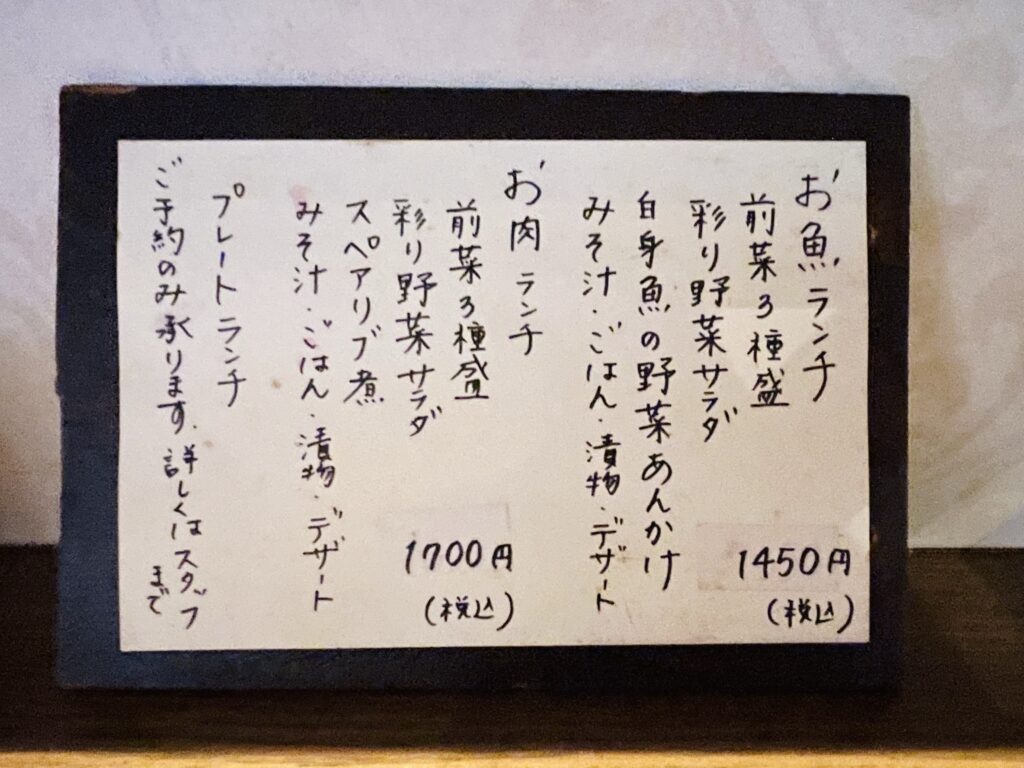 お魚ランチ
前菜3種盛
彩り野菜サラダ
白身魚の野菜あんかけ
みそ汁・ごはん・漬物・デザート
1450円
(税込)
お肉ランチ
前菜3種盛
彩り野菜サラダ
スペアリブ煮
みそ汁・ごはん・漬物・デザート
1700円
(税込)
プレートランチ
ご予約のみ承ります.詳しくはスタッフ
まで